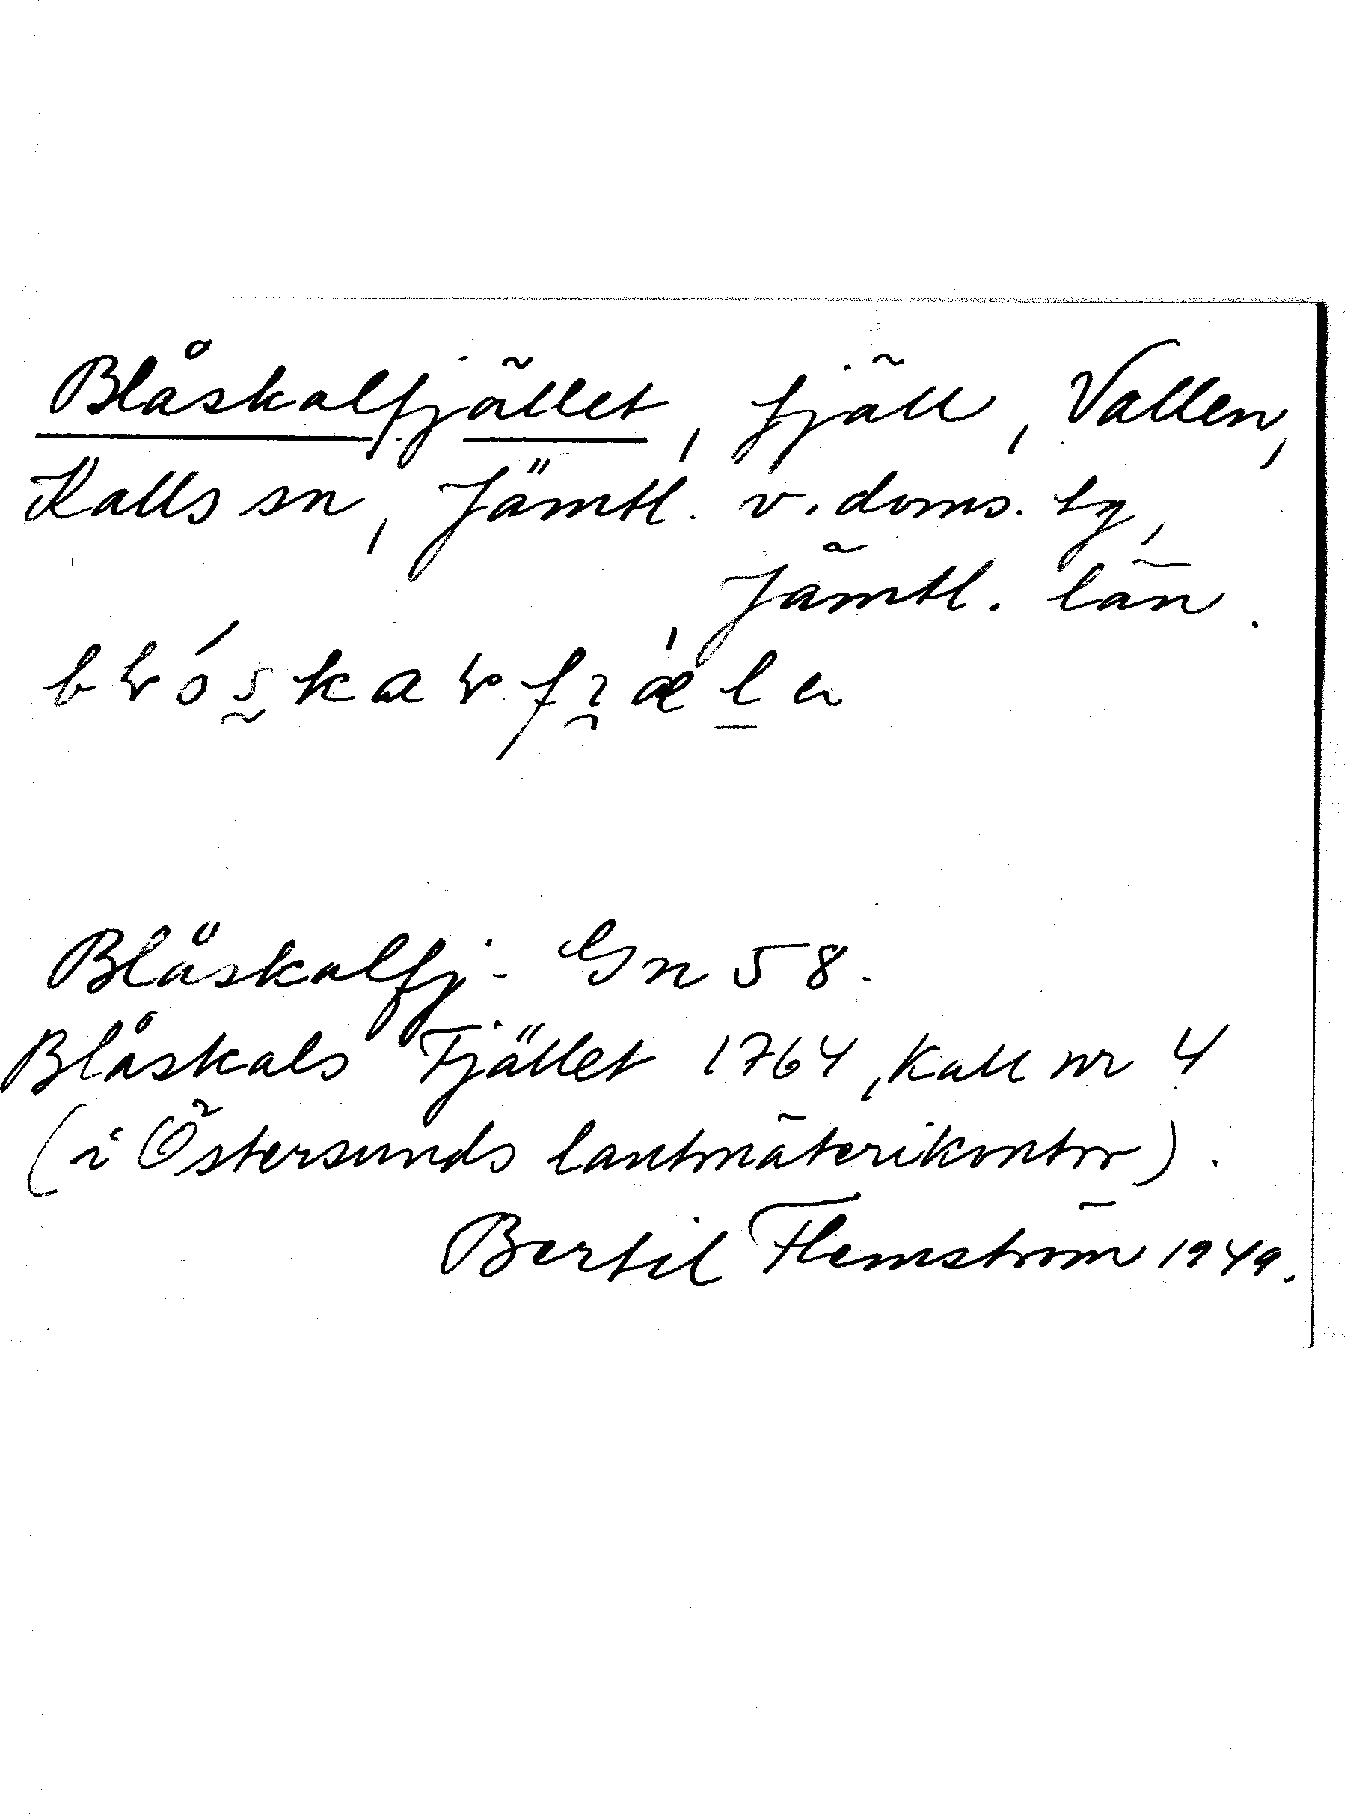 Blåskalfjället, fjäll, Vallen,
Kalls sn, Jämtl. v. doms. lg,
Jämtl. län.
Blåskalfj. Gn 58.
Blåskals Fjället 1764, Kall nr 4
(i Östersunds lantmäterikontor).
Bertil Flemström 1949.